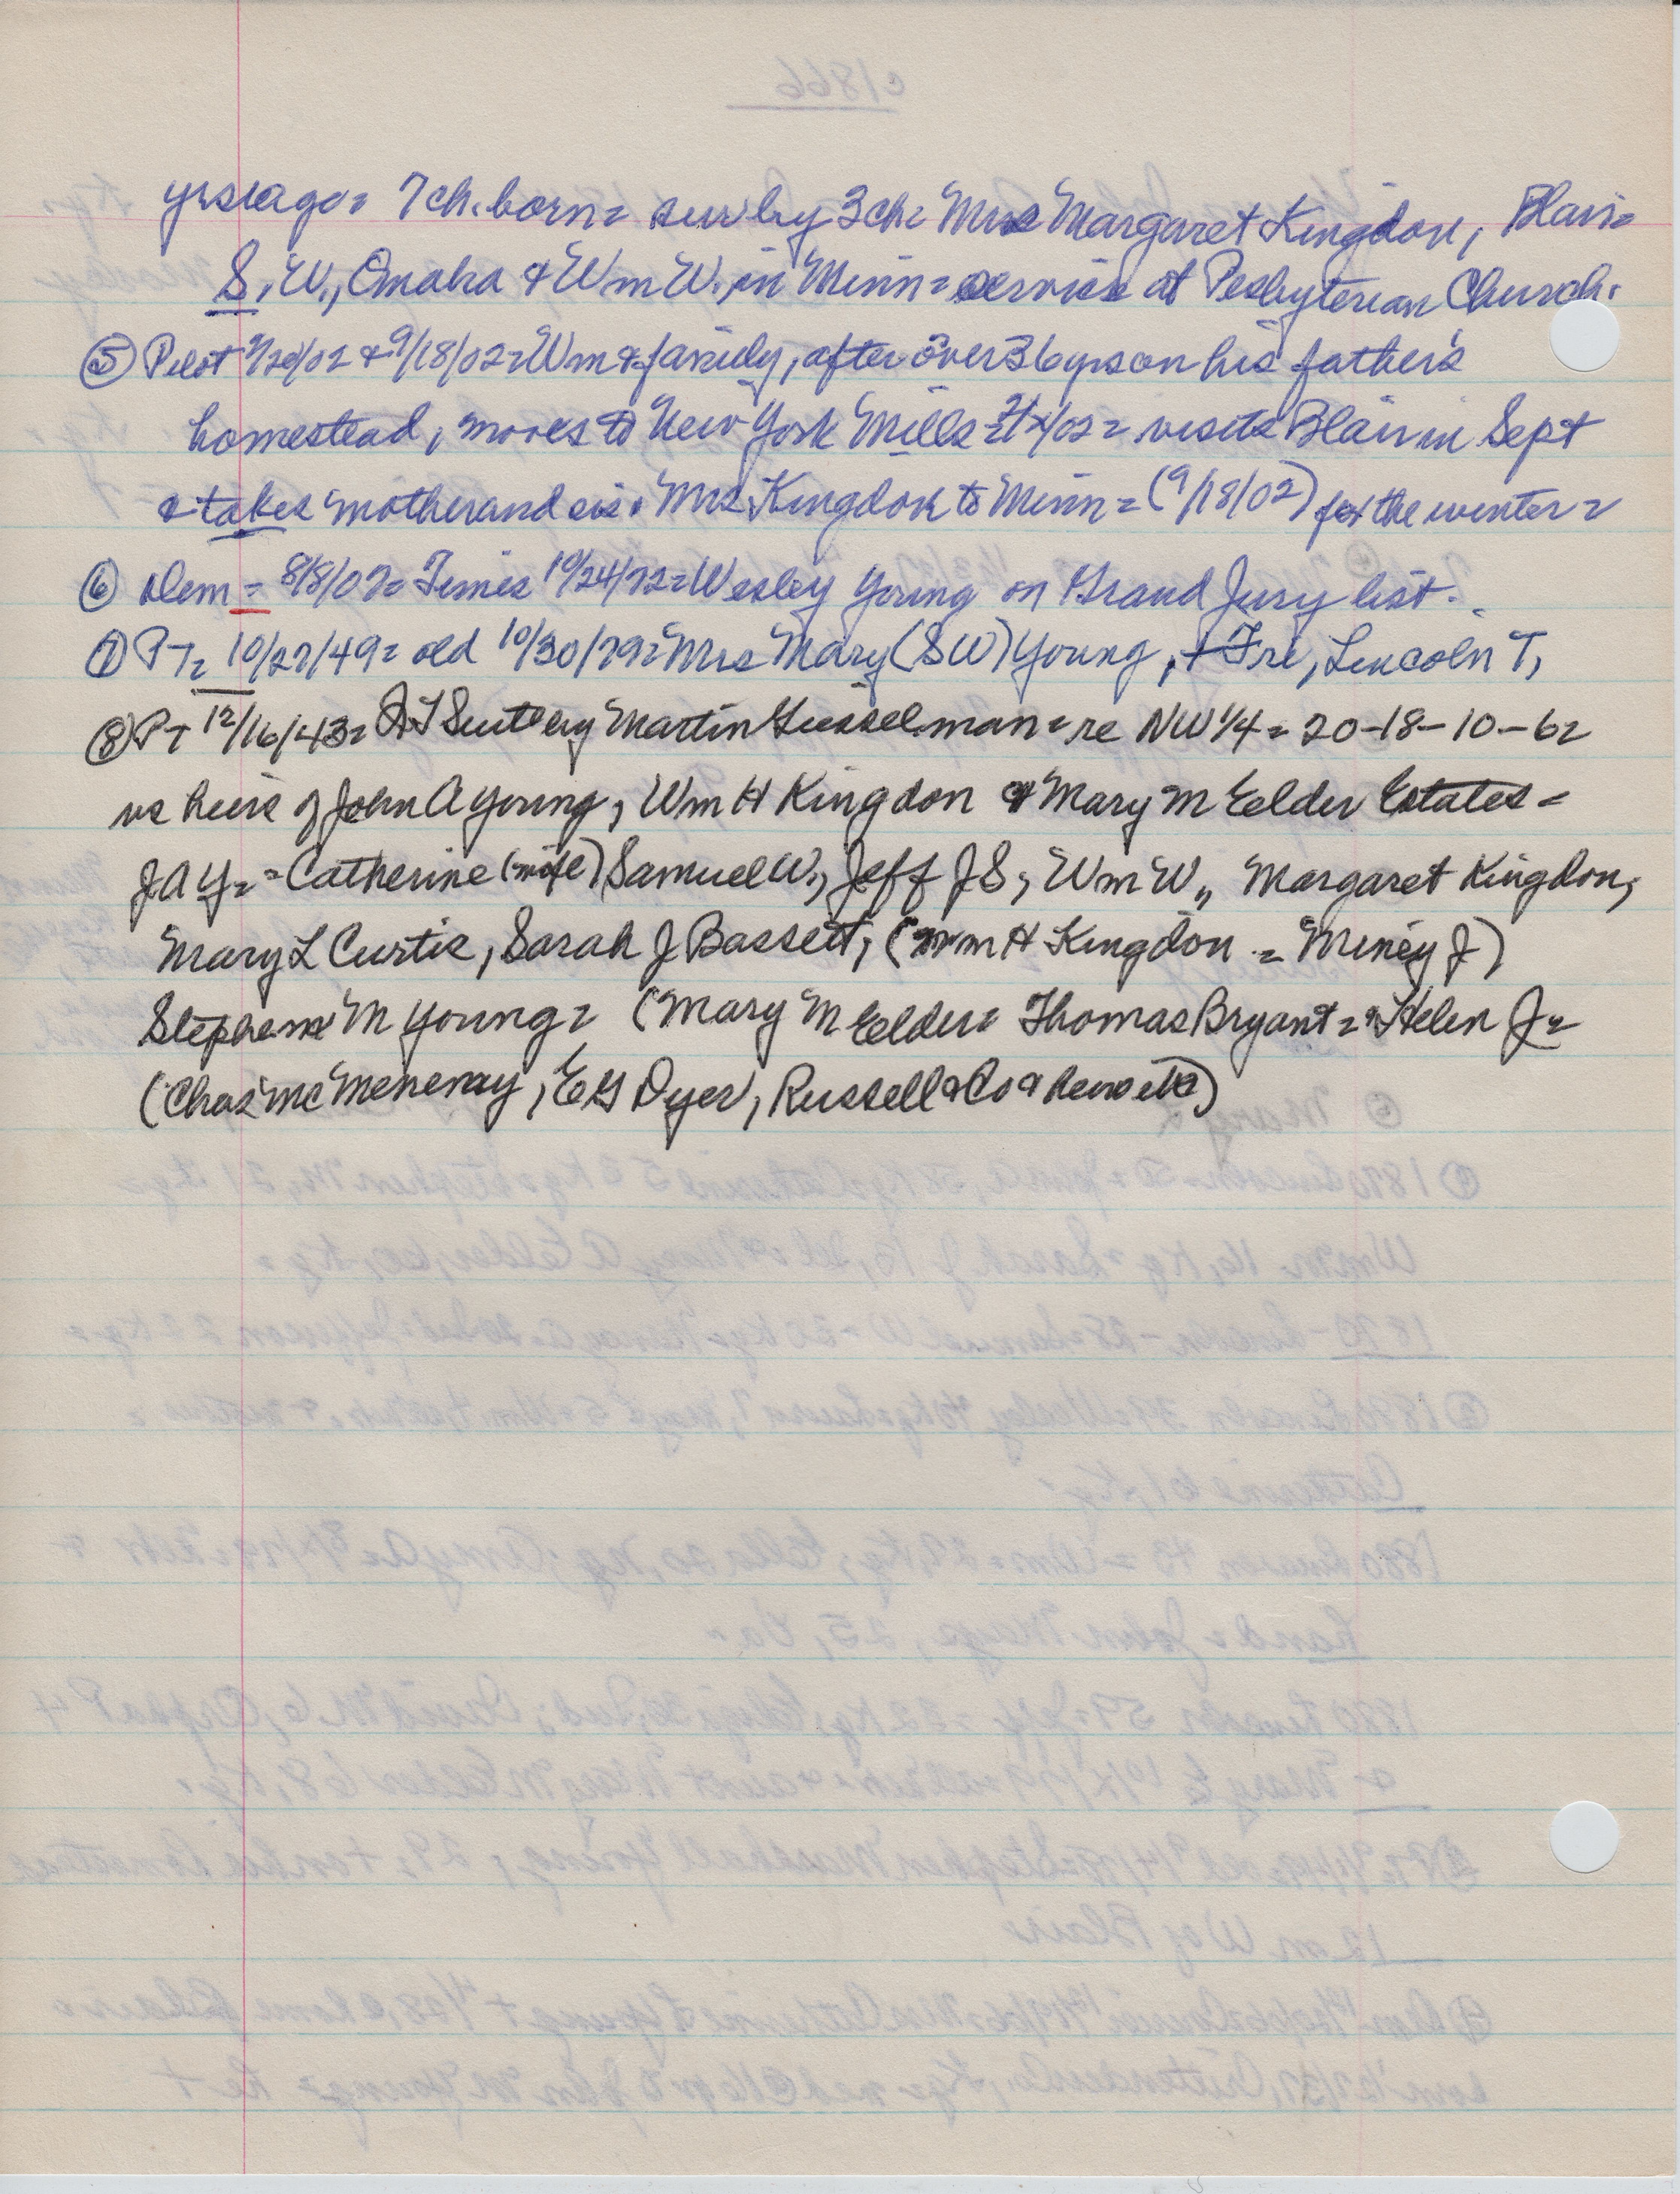 yrs ago= 7 ch. born= surv by 3 ch= Mrs Margaret Kingdon, Blair=
S. W., Omaha & Wm W. in Minn= service at Pesbyterian Church.
⑤ Pilot & 9/18/02= Wm & family, after over 36 yrs on his father's
homestead, moves to New York Mills = visits Blair in Sept
& takes mother and sis. Mrs Kingdon to Minn= (9/18/02) for the winter=
⑥ Dem= 8/8/07= Times 10/24/72= Wesley Young on Grand Jury list.
⑦ PT= 10/27/49= old 10/30/79= Mrs Mary (SW) Young, + Fri, Lincoln T,
⑧ PT 12/16/43= QT Suit by Martin = re NW 1/4= 20-18-10-6=
vs heirs of John A Young, Wm H Kingdon & Mary M Eelder Estates=
JAY= = Catherine (wife) Samuel W., Jeff JS, Wm W,, Margaret Kingdon,
Mary L Curtis, Sarah J Bassett, (Wm H Kingdon = J)
Stephen M Young= (Mary M Eelder= Thomas Bryant= & Helen J=
(Chas Mc , EG Dyer, Russell & Co & hers etc)